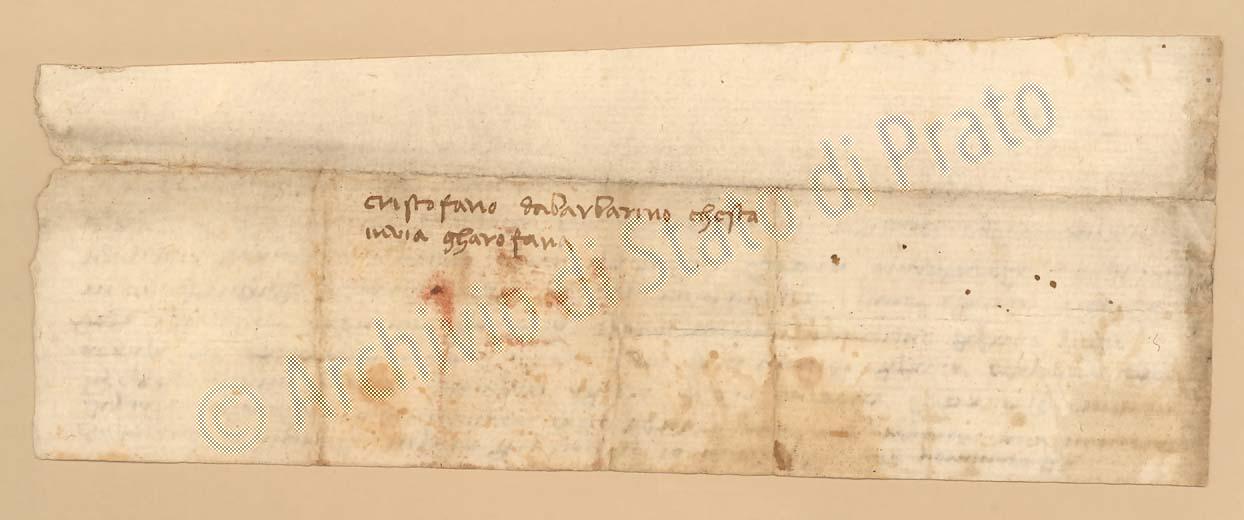 cristofano dabarbarino chesta
invia gharofana
© Archivio di Stato di Prato